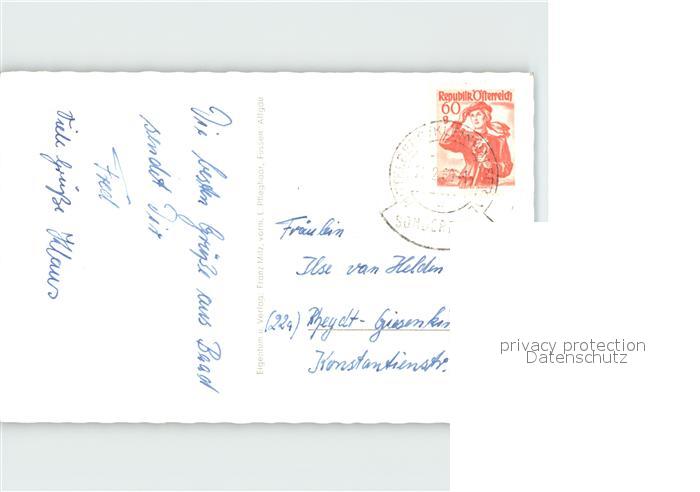 Die besten Grüße aus Baad
sendet Dir
Fred
Viele Grüße Klaus
Eigentum u. Verlag: Franz Milz, vorm. L. Pfleghaar, Füssen - Allgäu
Republik Österreich
60
g
SONDER
Fräulein
Ilse van Helden
(22a) Rheydt-Giesenki
Konstantienstr.
privacy protection
Datenschutz